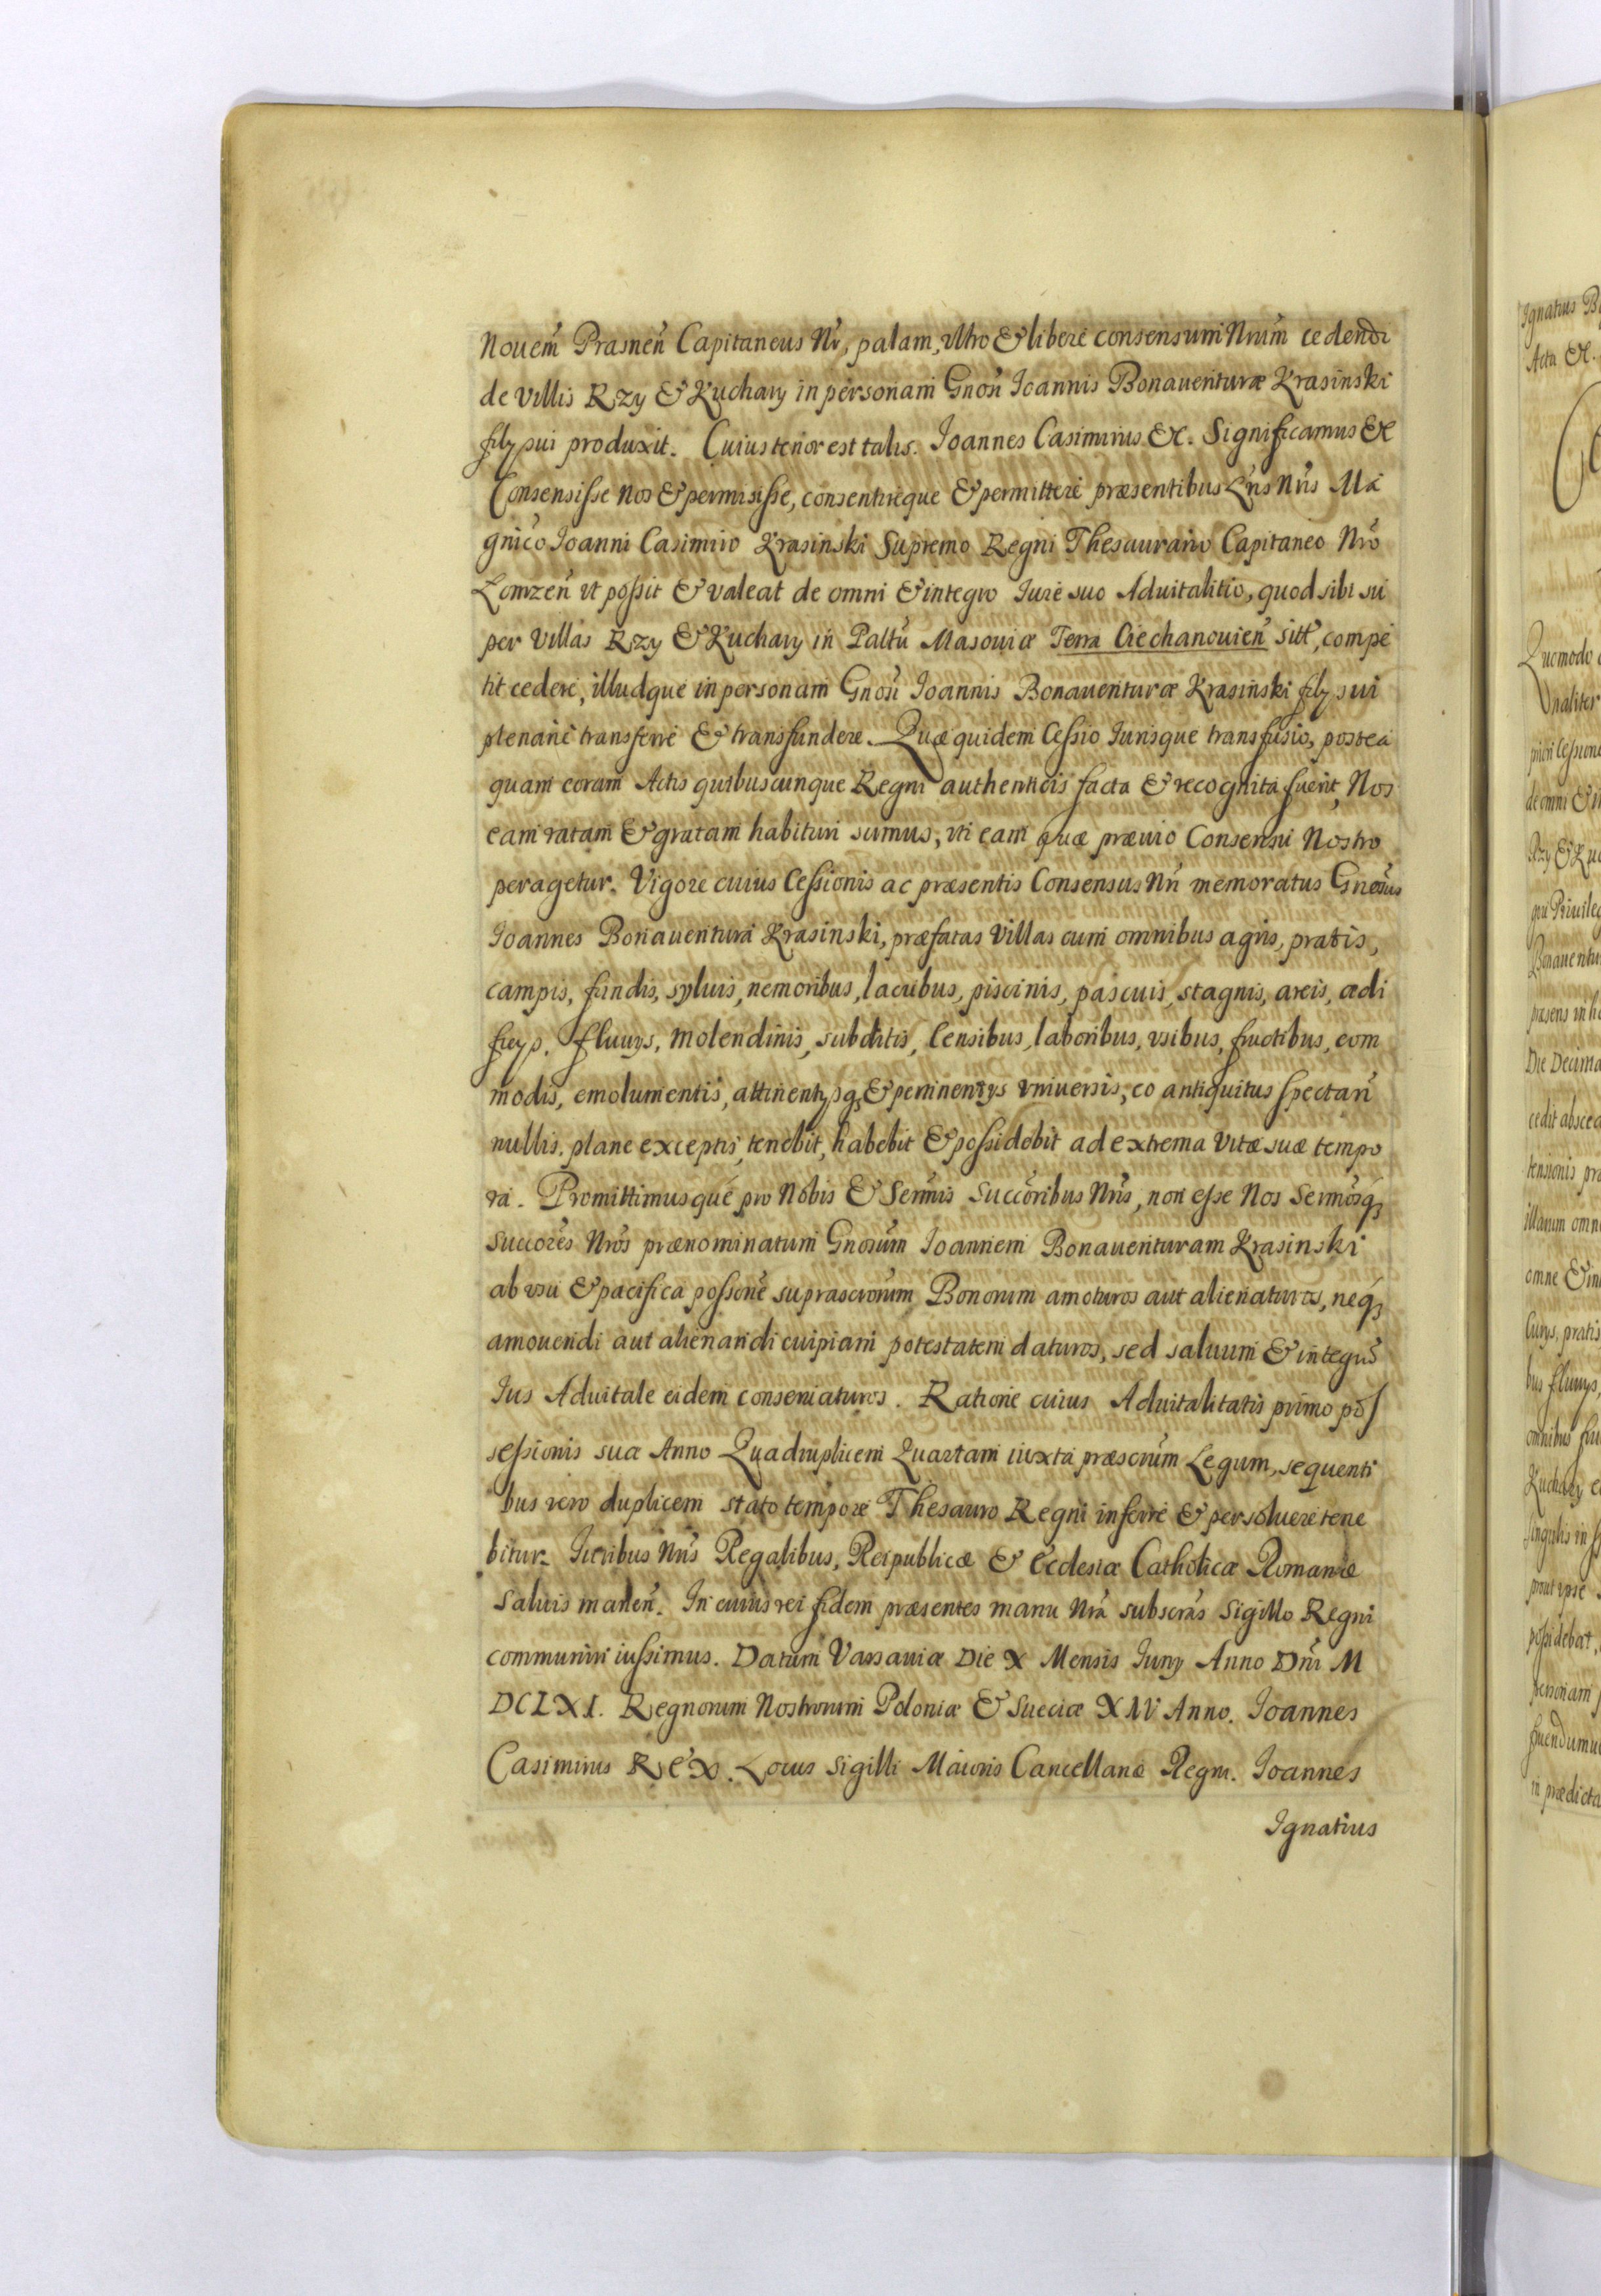 Nouem̃ Prasnen̄ Capitaneus Nr̃, palam, vltro & libere consensum Nrum̃ cedendi
de Villis Rzy & Kuchary in personam Gnosi Ioannis Bonauenturæ Krasinski
filÿ sui produxit. Cuius tenor est talis. Ioannes Casimirus &c. Significamus &c
Consensisse nos & permisisse, consentireque & permittere præsentibus Lr̃is Nr̃is Ma
gnico Ioanni Casimiro Krasinski Supremo Regni Thesaurario Capitaneo Nrõ
Lomzen̄ vt possit & valeat de omni & integro Iure suo Aduitalitio, quod sibi su
per Villas Rzy & Kuchary in Paltũ Masouiæ Terra Ciechanouien̄ sitt̃, compe
tit cedere, illudque in personam Gnosi Ioannis Bonauenturæ Krasinski filÿ sui
plenarie transferre & transfundere. Quæ quidem Cessio Iurisque transfusio, postea
quam coram Actis quibuscunque Regni authenticis facta & recognita fuerit, Nos
eam ratam & gratam habituri sumus, vti eam quæ præuio Consensu Nostro
peragetur. Vigore cuius Cessionis ac præsentis Consensus Nr̃i memoratus Gnosus
Ioannes Bonauentura Krasinski, præfatas Villas cum omnibus agris, pratis,
campis, fundis, syluis, nemoribus, lacubus, piscinis, pascuis, stagnis, areis, ædi
ficÿs, fluuÿs, molendinis, subditis, Censibus, laboribus, vsibus, fructibus, com
modis, emolumentis, attinentÿsq3 & pertinentÿs vniuersis, eo antiquitus spectan̄
nullis plane exceptis, tenebit, habebit & possidebit ad extrema vitæ suæ tempo
ra. Promittimusque pro Nobis & Sermis Succoribus Nr̃is, non esse Nos Sermosq3
Succores Nros prænominatum Gnosum Ioannem Bonauenturam Krasinski
ab vsu & pacifica possone suprascrorum Bonorum amoturos aut alienaturos, neq3
amouendi aut alienandi cuipiam potestatem daturos, sed saluum & integrũ
Ius Aduitale eidem conseruaturos. Ratione cuius Aduitalitatis primo pos
sessionis suæ Anno Quadruplicem Quartam iuxta præscrum Legum, sequenti
bus vero duplicem stato tempore Thesauro Regni inferre & persoluere tene
bitur. Iuribus Nr̃is Regalibus, Reipublicæ & Ecclesiæ Catholicæ Romanæ
saluis manen̄. In cuius rei fidem præsentes manu Nrã subscrãs Sigillo Regni
communiri iussimus. Datum Varsauiæ Die X Mensis Iunÿ Anno Dñi M
DCLXI. Regnorum Nostrorum Poloniæ & Sueciæ XIV Anno. Ioannes
Casimirus Rex. Locus Sigilli Maioris Cancellariæ Regni. Ioannes
Ignatius